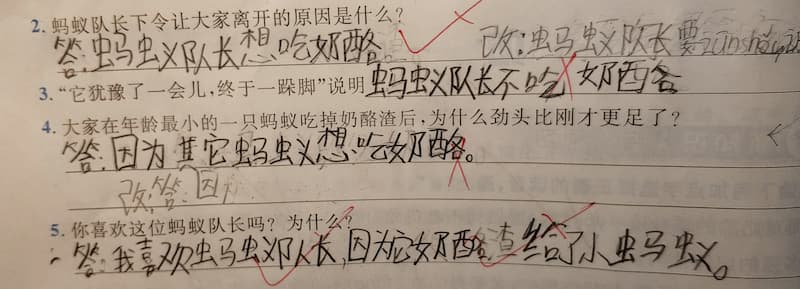 2. 蚂蚁队长下令让大家离开的原因是什么?
答:蚂蚁队长想吃奶酪 改:蚂蚁队长要
3. “它犹豫了一会儿,终于一跺脚”说明蚂蚁队长不吃奶酪
4. 大家在年龄最小的一只蚂蚁吃掉奶酪渣后,为什么劲头比刚才更足了?
答:因为其它蚂蚁想吃奶酪。
改:答:因
5. 你喜欢这位蚂蚁队长吗?为什么?
答:我喜欢蚂蚁队长,因为它奶酪渣给了小蚂蚁。